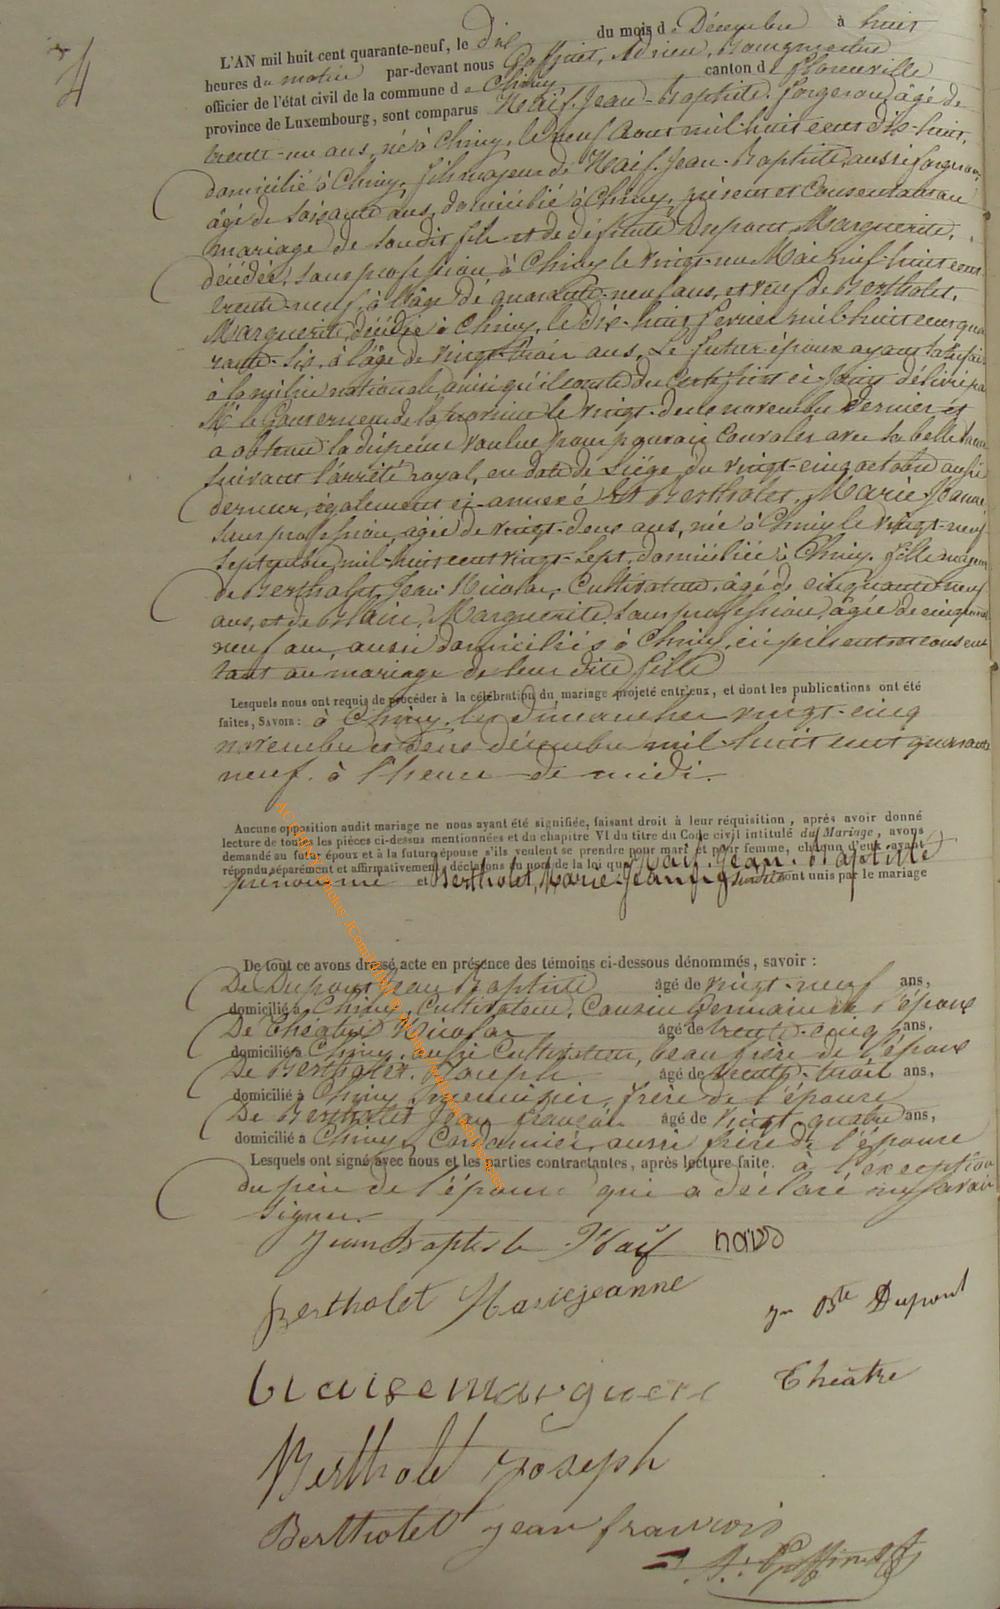 4
L'AN mil huit cent quarante-neuf, le dix du mois de Décembre à huit
heures du matin par-devant nous Goffinet, Adrien, Bourgmestre
officier de l'état civil de la commune de Chiny canton de Florenville
province de Luxembourg, sont comparus Naif, Jean-Baptiste, forgeron, âgé de
trente-un ans, né à Chiny, le neuf Aout mil-huit cent dix-huit,
domicilié à Chiny, fils majeur de Naif, Jean-Baptiste, aussi forgeron,
âgé de soixante ans, domicilié à Chiny, présent et Consentant au
mariage de son dit fils et de défunte Dupont, Marguerite,
décédée, sans profession à Chiny le vingt-un Mai mil-huit cent
trente-neuf, à l'âge de quarante-neuf ans, et veuf de Bertholet,
Marguerite, décédée à Chiny, le dix-huit fevrier mil huit cent qua
rante-six, à l'âge de vingt-trois ans, Le futur époux ayant satisfait
à la milice nationale ainsi qu'il conste du Certificat ci-joint délivré par
Mr le Gouverneur de la province le vingt-deux novembre dernier et
a obtenu la dispense voulue pour pouvoir Convoler avec sa belle soeur
suivant l'arrêté royal, en date de Liège, du vingt-cinq octobre aussi
dernier, également ci-annexé Et Bertholet, Marie Jeanne,
sans profession, agée de vingt-deux ans, née à Chiny le vingt-neuf
septembre mil-huit cent vingt-sept, domiciliée à Chiny, fille majeure
de Bertholet, Jean Nicolas, Cultivateur, âgé de cinquante neuf
ans, et de Blaise, Marguerite, sans profession, âgée de cinquante
neuf ans, aussi domiciliés à Chiny, ici présents et consen
tant au mariage de leur dite fille
Lesquels nous ont requis de procéder à la célébration du mariage projeté entr'eux, et dont les publications ont été
faites, SAVOIR : à Chiny, les dimanches vingt-cinq
novembre et deux décembre mil-huit cent quarante
neuf, à l'heure de midi.
Aucune opposition audit mariage ne nous ayant été signifiée, faisant droit à leur réquisition, après avoir donné
lecture de toutes les pièces ci-dessus mentionnées et du chapitre VI du titre du Code civil intitulé du Mariage, avons
demandé au futur époux et à la future épouse s'ils veulent se prendre pour mari et pour femme, chacun d'eux ayant
répondu séparément et affirmativement, déclarons au nom de la loi que Naif, Jean-Baptiste
prénommé et Bertholet, Marie-Jeanne, susdite sont unis par le mariage
De tout ce avons dressé acte en présence des témoins ci-dessous dénommés, savoir :
De Dupont, Jean Baptiste âgé de vingt-neuf ans,
domicilié à Chiny, Cultivateur, Cousin Germain de l'époux
De Théatre Nicolas âgé de trente-cinq ans,
domicilié à Chiny, aussi Cultivateur, beau frère de l'époux
De Bertholet, Joseph âgé de trente-trois ans,
domicilié à Chiny, menuisier, frère de l'épouse
De Bertholet Jean françois âgé de vingt quatre ans,
domicilié à Chiny, Cordonnier, aussi frère de l'épouse
Lesquels ont signé avec nous et les parties contractantes, après lecture faite, à l'exception
du père de l'épouse qui a déclaré ne savoir
signer.
Jean Baptiste Naif
Bertholet Mariejeanne
jn Bte Dupont
blaise marguerite
Théâtre
Bertholet joseph
Bertholet jean francois
A. Goffinet